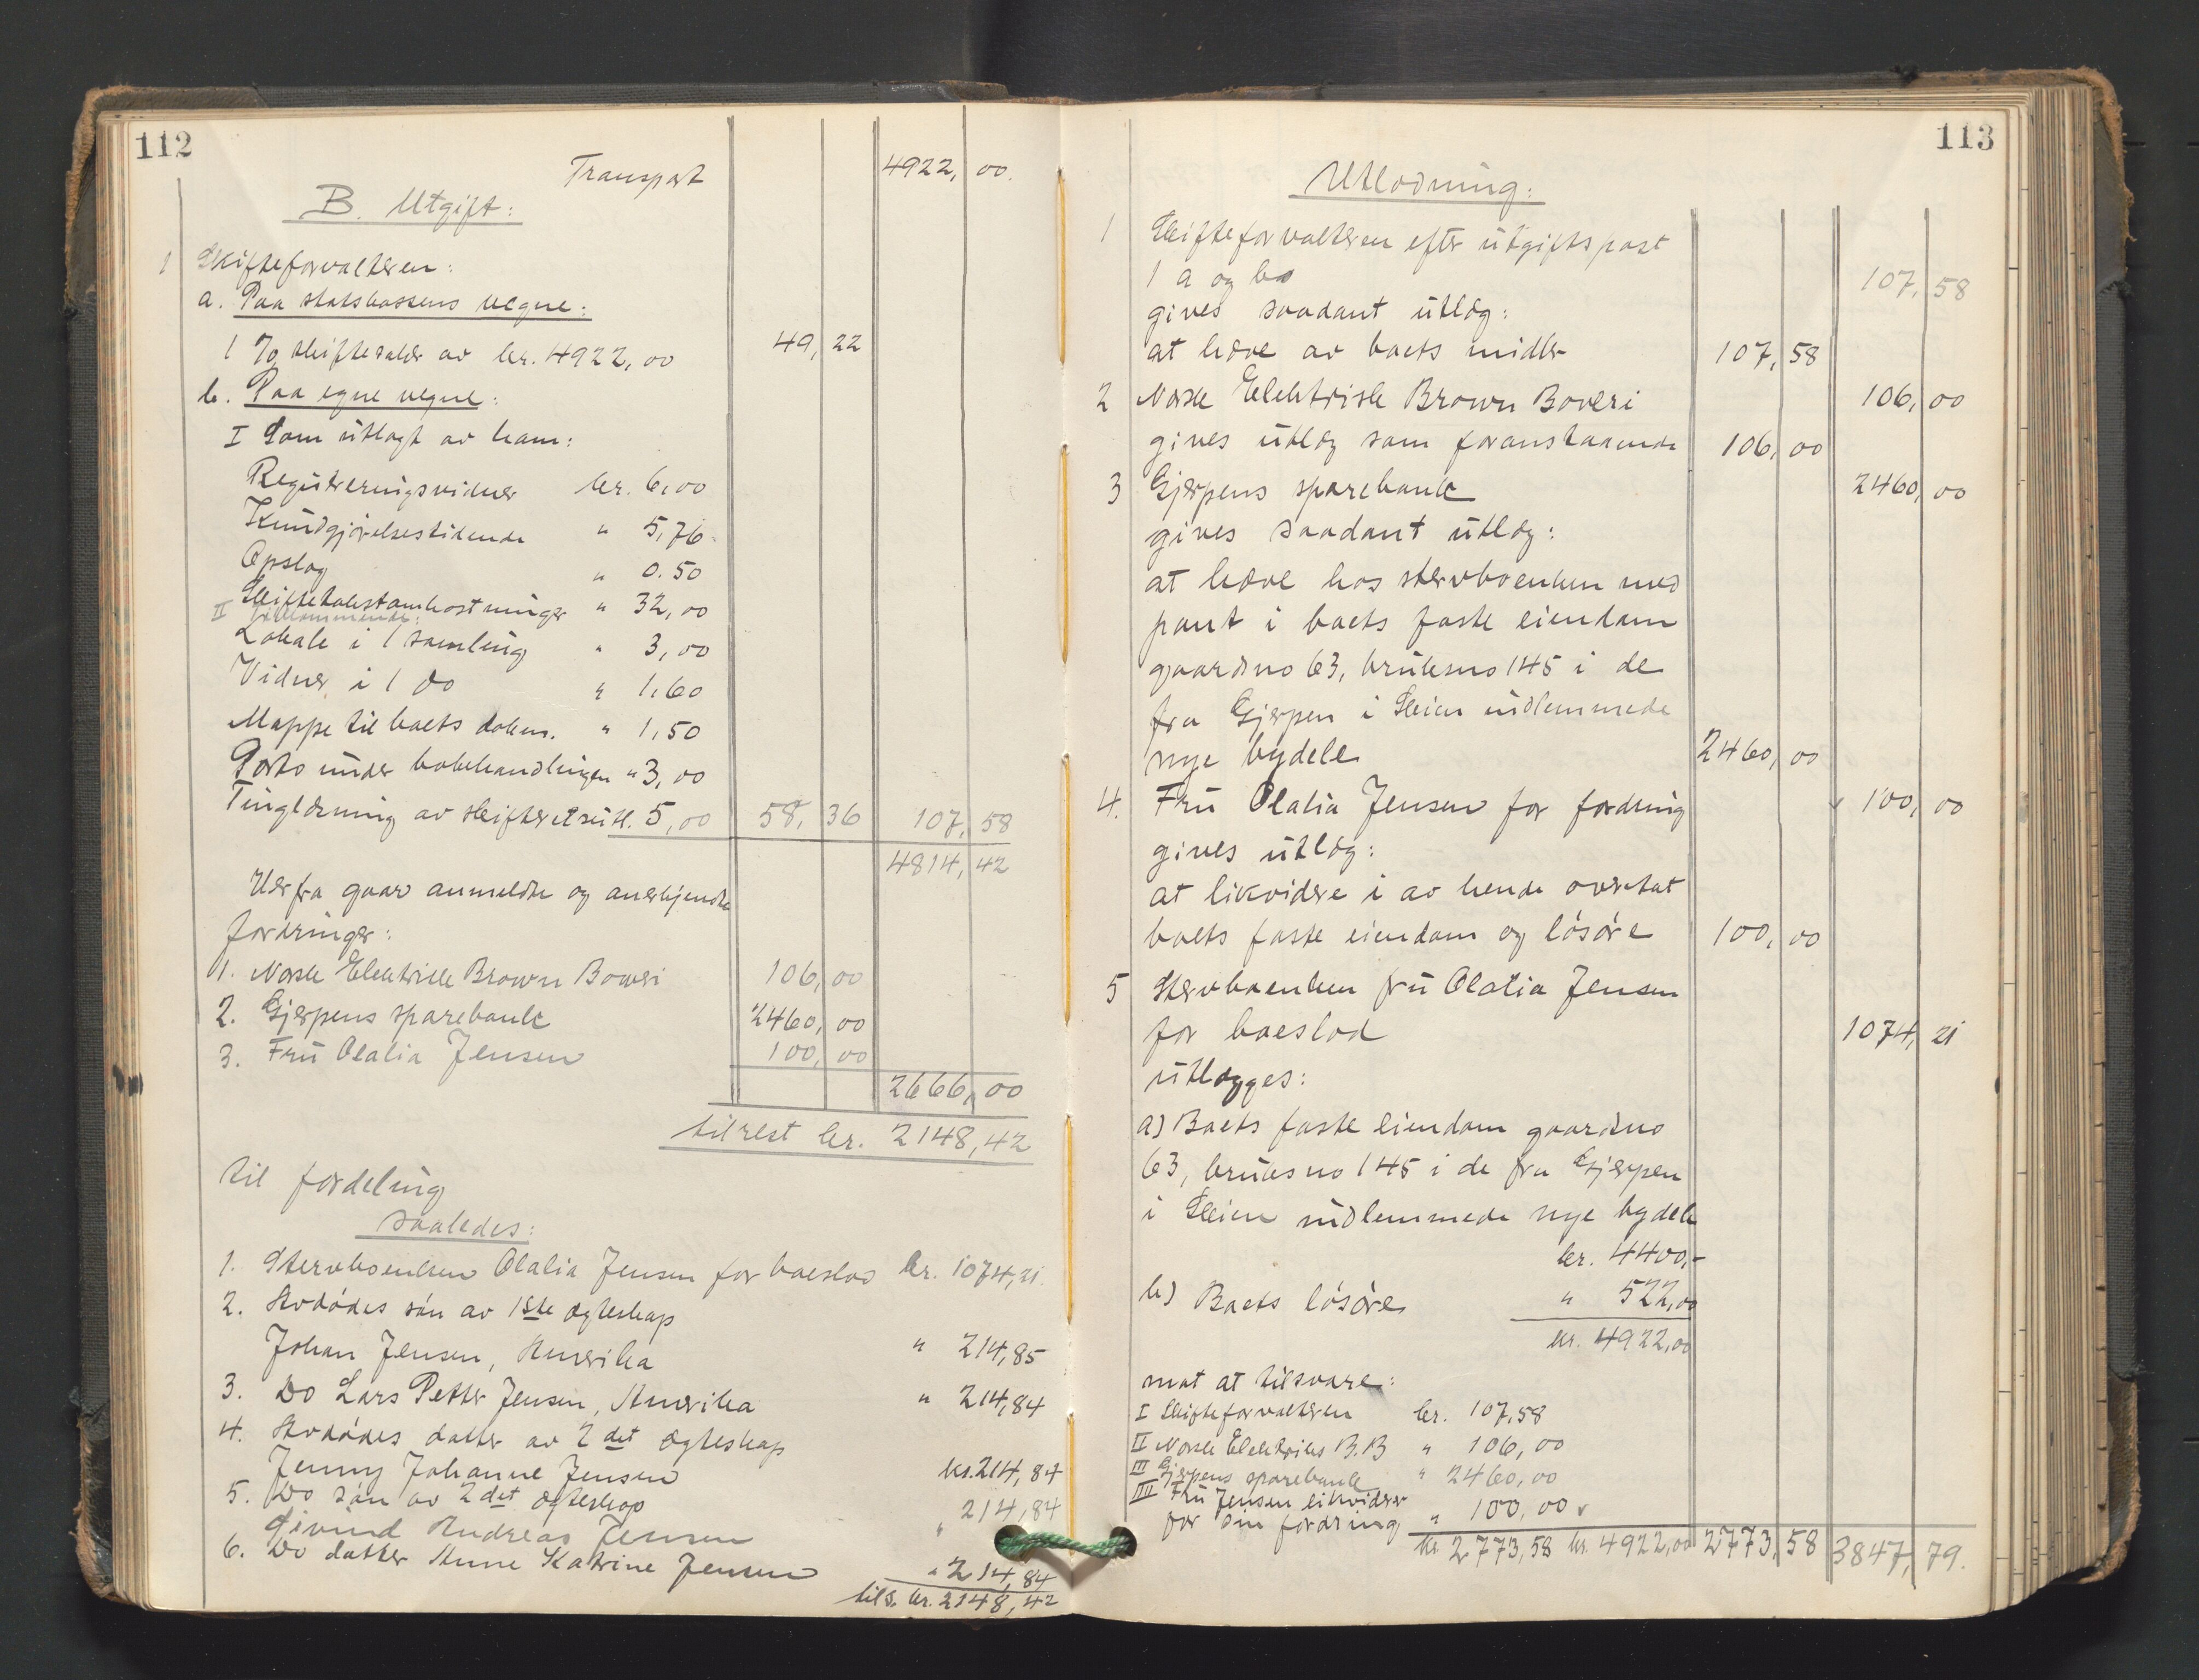 112
Transport 4922, 00.
B. Utgift:
1 Skifteforvalteren:
a. Paa statskassens vegne:
1 % skiftesalær av kr. 4922,00 49, 22
b. Paa egne vegne:
I Som utlagt av ham:
Registreringsvidner kr. 6,00
Kundgjörelsestidende " 5,76
Opslag " 0.50
Skiftetakstomkostninger " 32,00
II Tilkommende:
Lokale i 1 samling " 3,00
Vidner i 1 do " 1,60
Mappe til boets dokm. " 1,50
Porto under bobehandlingen " 3,00
Tinglæsning av skifteretsutl. 5,00 58, 36 107, 58
4814, 42
Herfra gaar anmeldte og anerkjendte
fordringer:
1. Norsk Elektrisk Brown Boveri 106, 00
2. Gjerpens sparebank 2460, 00
3. Fru Olalia Jensen 100, 00
2666, 00
til rest kr. 2148, 42
til fordeling
saaledes:
1. Stervboenken Olalia Jensen for boeslod kr. 1074,21.
2. Avdödes sön av 1ste ægteskap
Johan Jensen, Amerika " 214,85
3. Do Lars Petter Jensen, Amerika " 214,84
4. Avdödes datter av 2det ægteskap
Jenny Johanne Jensen kr. 214,84
5. Do sön av 2det ægteskap
Öivind Andreas Jensen " 214,84
6. Do datter Anne Katrine Jensen " 214,84
tils. kr. 2148,42
113
Utlodning:
1 Skifteforvalteren efter utgiftspost
1 a og b 107, 58
gives saadant utlæg:
at hæve av boets midler 107, 58
2 Norsk Elektrisk Brown Boveri 106, 00
gives utlæg som foranstaaende 106, 00
3 Gjerpens sparebank 2460, 00
gives saadant utlæg:
at hæve hos stervboenken med
pant i boets faste eiendom
gaardsno 63, bruksno 145 i de
fra Gjerpen i Skien indlemmede
nye bydele 2460, 00
4. Fru Olalia Jensen for fordring 100, 00
gives utlæg:
at likvidere i av hende overtat
boets faste eiendom og lösöre 100, 00
5 Stervboenken fru Olalia Jensen
for boeslod 1074, 21
utlægges:
a) Boets faste eiendom gaardsno
63, bruksno 145 i de fra Gjerpen
i Skien indlemmede nye bydele
kr. 4400,-
b) Boets lösöre " 522,00
kr. 4922,00
mot at tilsvare:
I Skifteforvalteren kr. 107,58
II Norsk Elektrisk B.B " 106,00
III Gjerpens sparebank " 2460,00
IIII Fru Jensen likviderer
for sin fordring " 100,00
kr. 2773,58 kr. 4922,00 2773, 58 3847, 79.